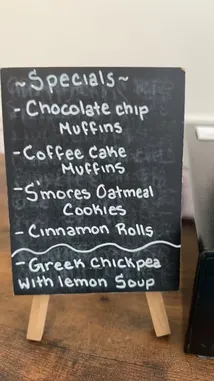 ~Specials~
- Chocolate chip
Muffins
- Coffee Cake
Muffins
- S'mores Oatmeal
Cookies
- Cinnamon Rolls
- Greek Chickpea
With lemon Soup